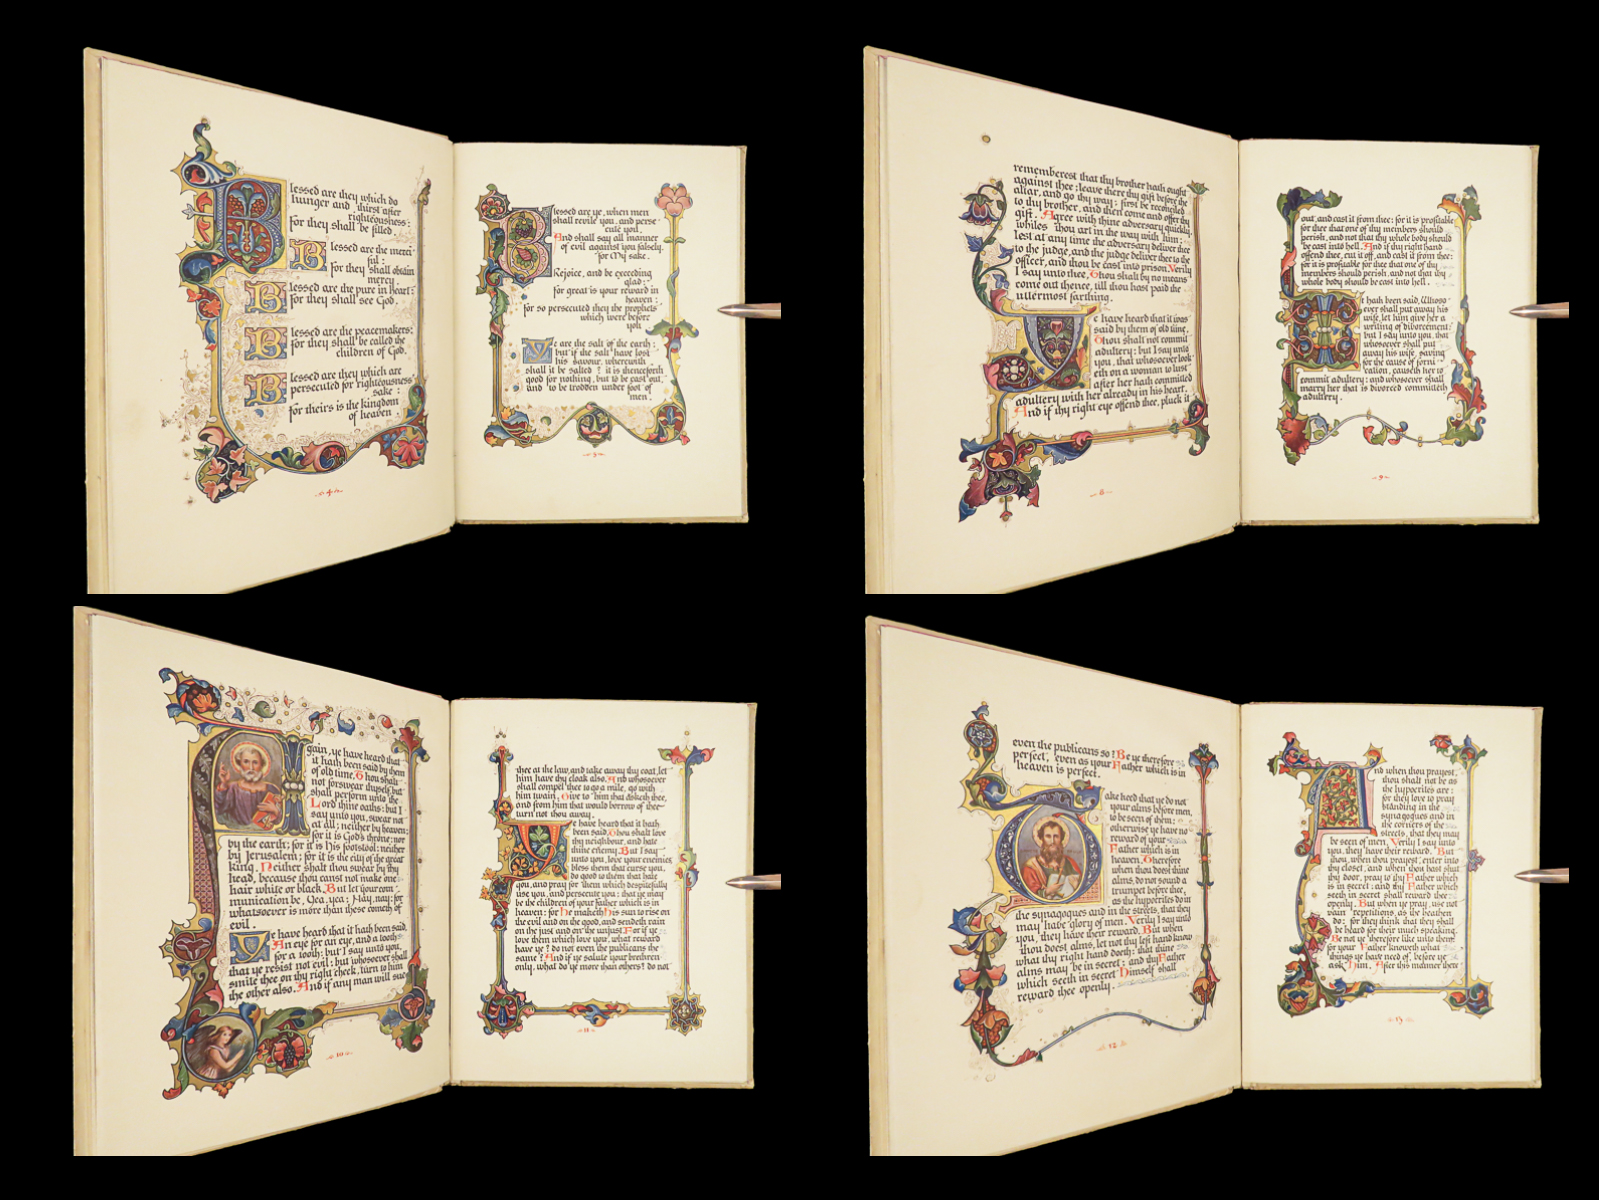 Blessed are they which do
hunger and thirst after
righteousness:
for they shall be filled.
Blessed are the merci-
ful:
for they shall obtain
mercy.
Blessed are the pure in heart:
for they shall see God.
Blessed are the peacemakers:
for they shall be called the
children of God.
Blessed are they which are
persecuted for righteousness
sake:
for theirs is the kingdom
of heaven.
4
Blessed are ye, when men
shall revile you, and perse-
cute you,
And shall say all manner
of evil against you falsely,
for My sake.
Rejoice, and be exceeding
glad:
for great is your reward in
heaven:
for so persecuted they the prophets
which were before
you.
Ye are the salt of the earth:
but if the salt have lost
his savour, wherewith
shall it be salted? it is thenceforth
good for nothing, but to be cast out,
and to be trodden under foot of
men.
rememberest that thy brother hath ought
against thee; leave there thy gift before the
altar, and go thy way; first be reconciled
to thy brother, and then come and offer thy
gift. Agree with thine adversary quickly,
whiles thou art in the way with him:
lest at any time the adversary deliver thee
to the judge, and the judge deliver thee to the
officer, and thou be cast into prison. Verily
I say unto thee, Thou shalt by no means
come out thence, till thou hast paid the
uttermost farthing.
Ye have heard that it was
said by them of old time,
Thou shalt not commit
adultery: but I say unto
you, that whosoever look
eth on a woman to lust
after her hath committed
adultery with her already in his heart.
And if thy right eye offend thee, pluck it
8
out, and cast it from thee: for it is profitable
for thee that one of thy members should
perish, and not that thy whole body should
be cast into hell. And if thy right hand
offend thee, cut it off, and cast it from thee:
for it is profitable for thee that one of thy
members should perish, and not that thy
whole body should be cast into hell.
It hath been said, Whoso
ever shall put away his
wife, let him give her a
writing of divorcement:
but I say unto you, that
whosoever shall put
away his wife, saving
for the cause of forni
cation, causeth her to
commit adultery: and whosoever shall
marry her that is divorced committeth
adultery.
9
Again, ye have heard that
it hath been said by them
of old time, Thou shalt
not forswear thyself, but
shall perform unto the
Lord thine oaths: but I
say unto you, swear not
at all; neither by heaven;
for it is God's throne: nor
by the earth; for it is His footstool: neither
by Jerusalem; for it is the city of the great
king. Neither shalt thou swear by thy
head, because thou canst not make one
hair white or black. But let your com-
munication be, Yea, yea; Nay, nay: for
whatsoever is more than these cometh of
evil.
Ye have heard that it hath been said,
An eye for an eye, and a tooth
for a tooth: but I say unto you,
that ye resist not evil: but whosoever shall
smite thee on thy right cheek, turn to him
the other also. And if any man will sue
10
thee at the law, and take away thy coat, let
him have thy cloak also. And whosoever
shall compel thee to go a mile, go with
him twain. Give to him that asketh thee,
and from him that would borrow of thee
turn not thou away.
Ye have heard that it hath
been said, Thou shalt love
thy neighbour, and hate
thine enemy. But I say
unto you, love your enemies,
bless them that curse you,
do good to them that hate
you, and pray for them which despitefully
use you, and persecute you; that ye may
be the children of your Father which is in
heaven: for He maketh His sun to rise on
the evil and on the good, and sendeth rain
on the just and on the unjust. For if ye
love them which love you, what reward
have ye? do not even the publicans the
same? And if ye salute your brethren
only, what do ye more than others? do not
11
even the publicans so? Be ye therefore
perfect, even as your Father which is in
heaven is perfect.
Take heed that ye do not
your alms before men,
to be seen of them:
otherwise ye have no
reward of your
Father which is in
heaven. Therefore
when thou doest thine
alms, do not sound a
trumpet before thee,
as the hypocrites do in
the synagogues and in the streets, that they
may have glory of men. Verily I say unto
you, they have their reward. But when
thou doest alms, let not thy left hand know
what thy right hand doeth: that thine
alms may be in secret: and thy Father
which seeth in secret Himself shall
reward thee openly.
12
And when thou prayest,
thou shalt not be as
the hypocrites are:
for they love to pray
standing in the
synagogues and in
the corners of the
streets, that they may
be seen of men. Verily I say unto
you, they have their reward. But
thou, when thou prayest, enter into
thy closet, and when thou hast shut
thy door, pray to thy Father which
is in secret; and thy Father which
seeth in secret shall reward thee
openly. But when ye pray, use not
vain repetitions, as the heathen
do: for they think that they shall
be heard for their much speaking.
Be not ye therefore like unto them:
for your Father knoweth what
things ye have need of, before ye
ask Him. After this manner there
13